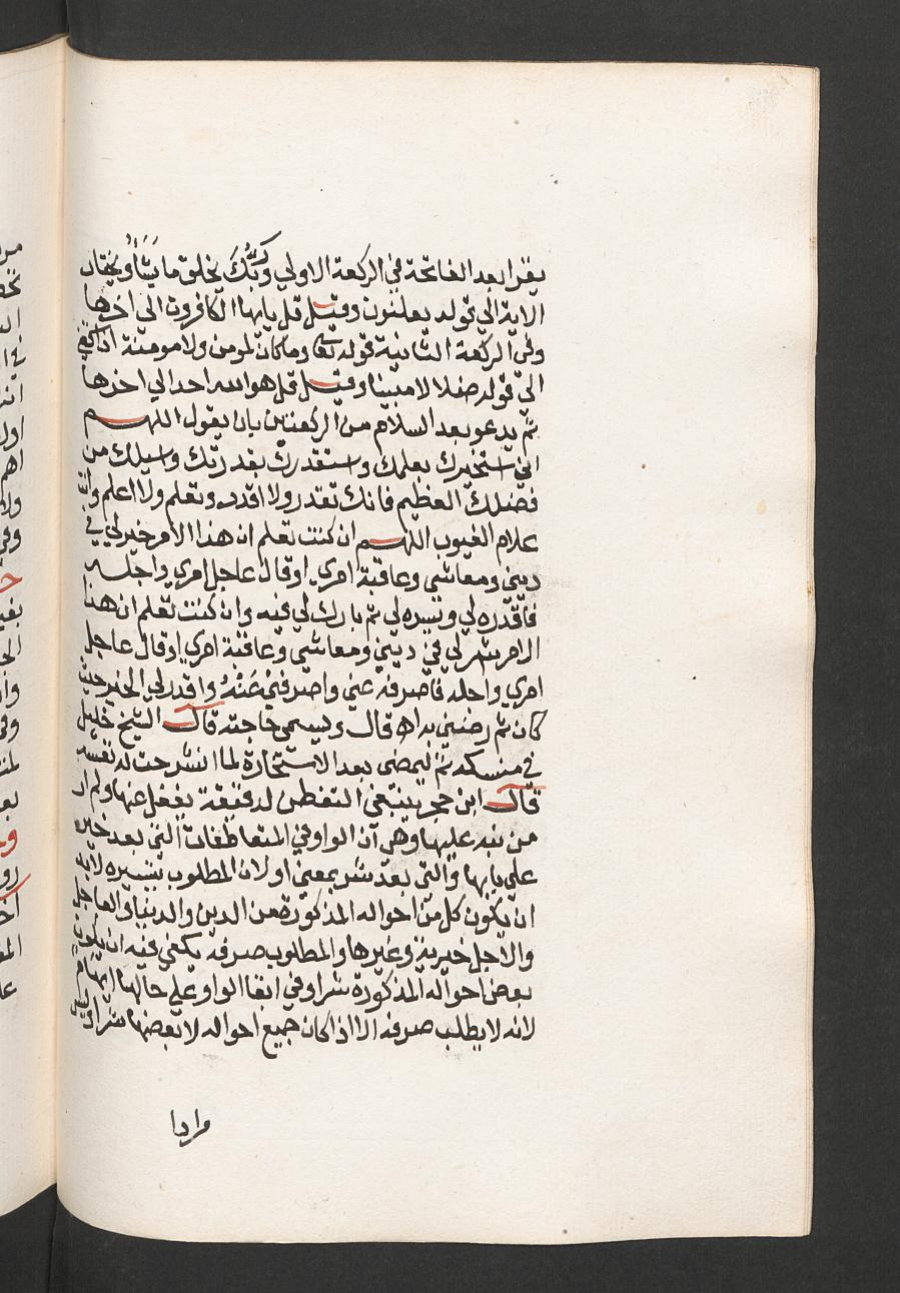 يقرا بعد الفاتحة في الركعة الاولي وَرَبُّكَ يخلق ما يَشَاُ ويختار
الاية الي قوله يعلنون وقيل قل يايها الكافرون الي اخرها
وفي الركعة الثانية قوله تعا وما كان لمومن ولا مومنة اذا قضي
الي قوله ضلالا مبينا وقيل قل هو الله احد الي اخرها
ثم يدعو بعد السلام من الركعتين بان يقول اللهم
اني استخيرك بعلمك واستقدرك بقدرتك واسيلك من
فضلك العظيم فانك تقدر ولا اقدر وتعلم ولا اعلم وانت
علام الغيوب اللهم ان كنت تعلم ان هذا الامر خير لي في
ديني ومعاشي وعاقبة امري او قال عاجل امري واجله
فاقدره لي ويسره لي ثم بارك لي فيه وان كنت تعلم ان هذا
الامر شر لي في ديني ومعاشي وعاقبة امري او قال عاجل
امري واجله فاصرفه عني واصرفني عَنْهُ واقدر لي الخير حيث
كان ثم رضني به اه قال ويسمي حاجته قال الشيخ خليل
في منسكه ثم ليمضي بعد الاستخارة لما انشرحت له نفسه
قال ابن حجر ينبغي التفطن لدقيقة يغفل عنها ولم ار
من نبه عليها وهي ان الواو في المتعاطفات التي بعد خير
علي بابها والتي بعد شر بمعني او لان المطلوب تيسيره لابد
ان يكون كل من احواله المذكورة من الدين والدنيا والعاجل
والاجل خيرية وغيرها والمطلوب صرفه يكفي فيه ان يكون
بعض احواله المذكورة شرا وفي ابقا الواو علي حالها ايهام
لانه لا يطلب صرفه الا اذا كان جميع احواله لا بعضها شرا وليس
مرادا